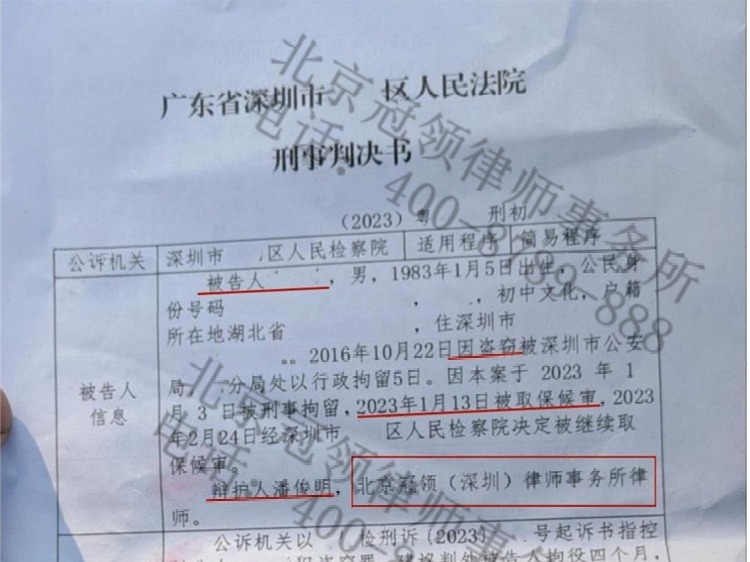 广东省深圳市 区人民法院
刑事判决书
（2023）粤 刑初
公诉机关 深圳市 区人民检察院 适用程序 简易程序
被告人 ，男，1983年1月5日出生，公民身
份号码 ，初中文化，户籍
所在地湖北省 ，住深圳市
。2016年10月22日因盗窃被深圳市公安
被告人
信息
局 分局处以行政拘留5日。因本案于 2023 年 1
月 3 日被刑事拘留，2023年1月13日被取保候审，2023
年2月24日经深圳市 区人民检察院决定被继续取
保候审。
辩护人潘俊明，北京冠领（深圳）律师事务所律
师。
公诉机关以 检刑诉（2023） 号起诉书指控
犯盗窃罪，建议判处被告人拘役四个月，
北京冠领律师事务所
电话：400-8789-888
北京冠领律师事务所
电话：400-8